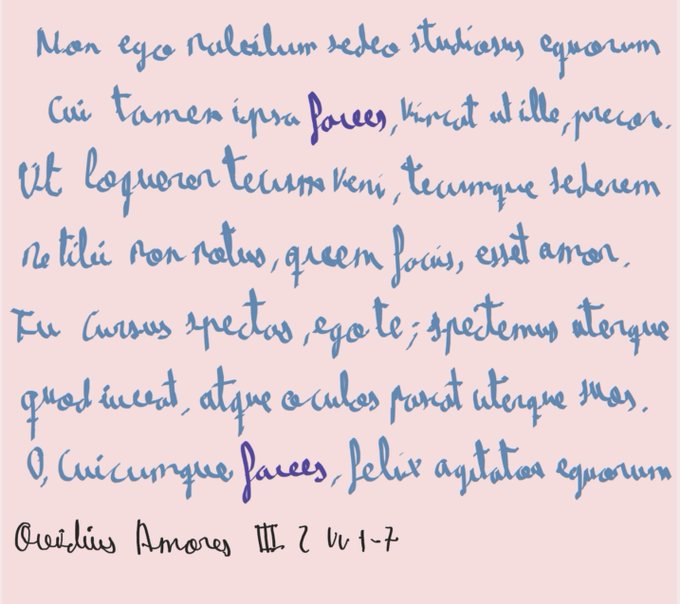 Non ego nobilium sedeo studiosus equorum
Cui tamen ipsa faves, vincat ut ille, precor.
Ut loquerer tecum veni, tecumque sederem
ne tibi non notus, quem facis, esset amor.
Tu cursus spectas, ego te; spectemus uterque
quod iuvat, atque oculos pascat uterque suos.
O, cuicumque faves, felix agitator equorum
Ovidius Amores III 2 vv 1-7